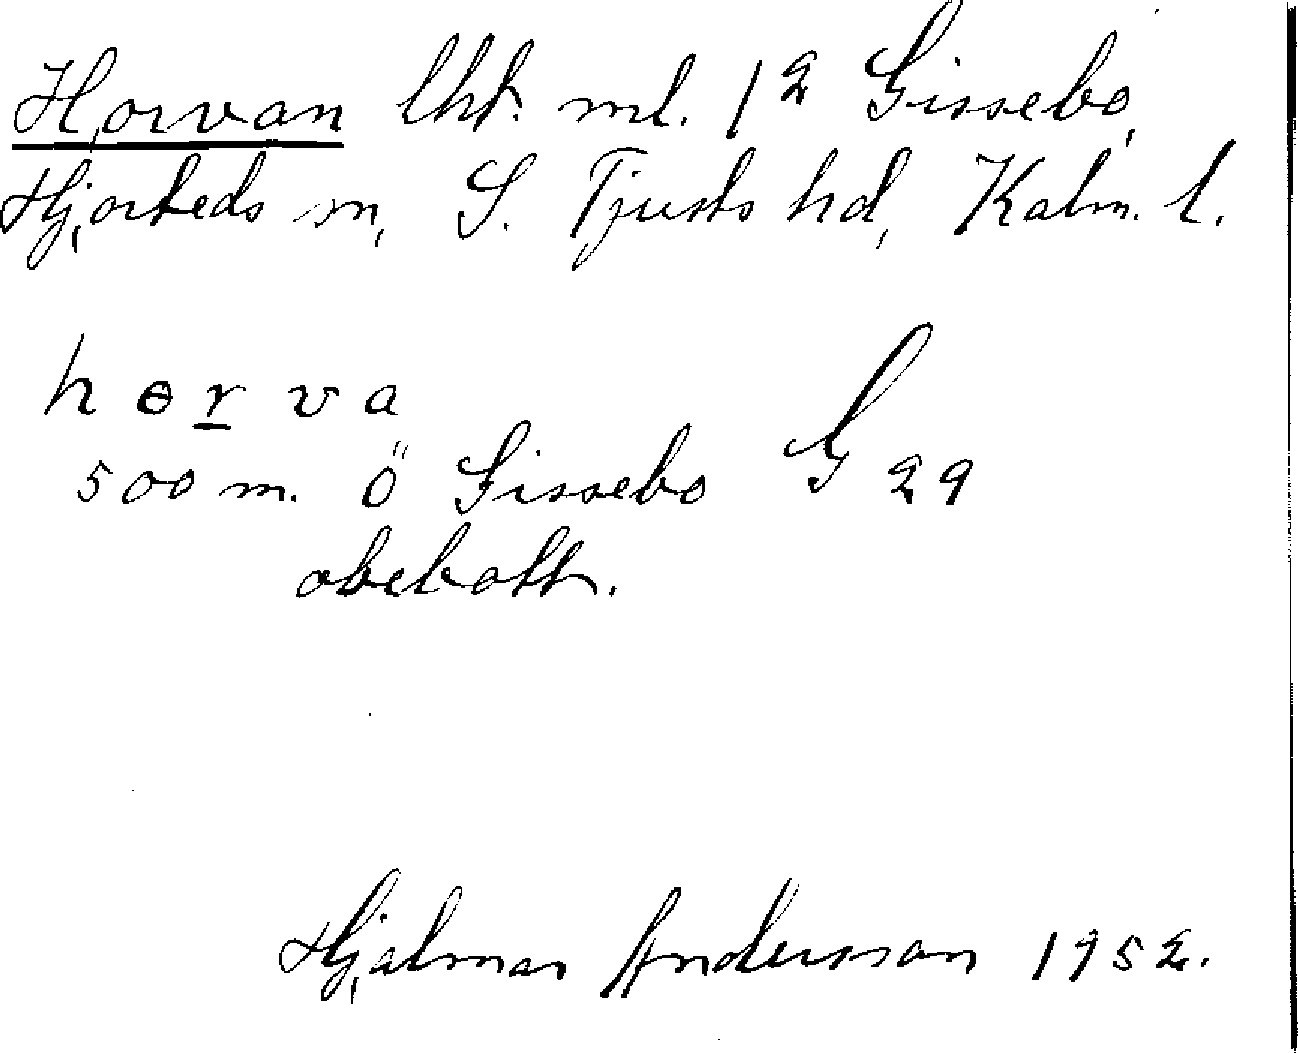 Horvan lht. ml. 1² Gissebo,
Hjorteds sn, S. Tjusts hd, Kalm. l.
hɵrva
500 m. Ö Gissebo G 29
obebott.
Hjalmar Andersson 1952.